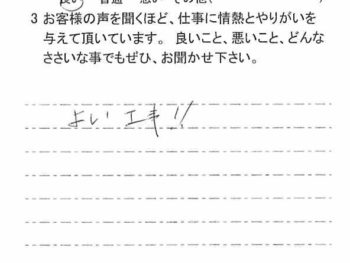 良い 普通 悪い その他(
3 お客様の声を聞くほど、仕事に情熱とやりがいを
与えて頂いています。 良いこと、悪いこと、どんな
ささいな事でもぜひ、お聞かせ下さい。
よい 工事!!